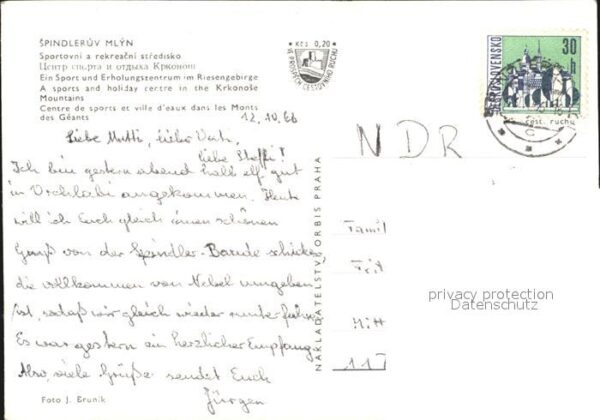 ŠPINDLERŮV MLÝN
Sportovní a rekreační středisko
Центр спорта и отдыха Крконош
Ein Sport und Erholungszentrum im Riesengebirge
A sports and holiday centre in the Krkonoše
Mountains
Centre de sports et ville d'eaux dans les Monts
des Géants
Kčs 0,20
PROSPĚCH CESTOVNÍHO RUCHU
30 h
ČESKOSLOVENSKO
cest. ruchu
12.10.66
Liebe Mutti, lieber Vati,
liebe Steffi!
Ich bin gestern abend halb elf gut
in Vrchlabi angekommen. Heut
will ich Euch gleich einen schönen
Gruß von der Spindler-Baude schicken,
die vollkommen von Nebel umgeben
ist, sodaß wir gleich wieder runterfuhren.
Es war gestern ein herzlicher Empfang.
Also, viele Grüße sendet Euch
Jürgen
NDR
Famil
Frit
Mitt
117
NAKLADATELSTVÍ ORBIS PRAHA
privacy protection
Datenschutz
Foto J. Bruník